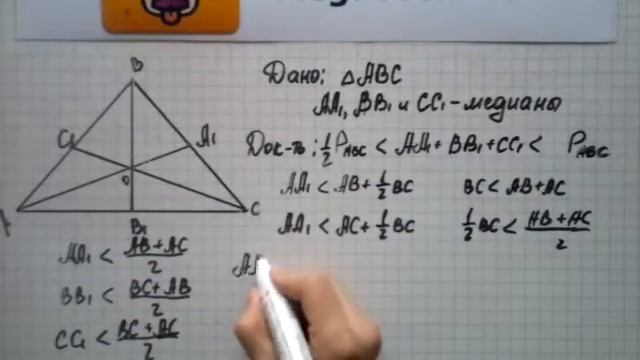 B
C₁
A₁
O
A
B₁
C
Дано: △ABC
AA₁, BB₁ и CC₁ - медианы
Док-ть: ½P_ABC < AA₁ + BB₁ + CC₁ < P_ABC
AA₁ < AB + ½BC BC < AB + AC
AA₁ < AC + ½BC ½BC < (AB + AC)/2
AA₁ < (AB + AC)/2
BB₁ < (BC + AB)/2
CC₁ < (BC + AC)/2